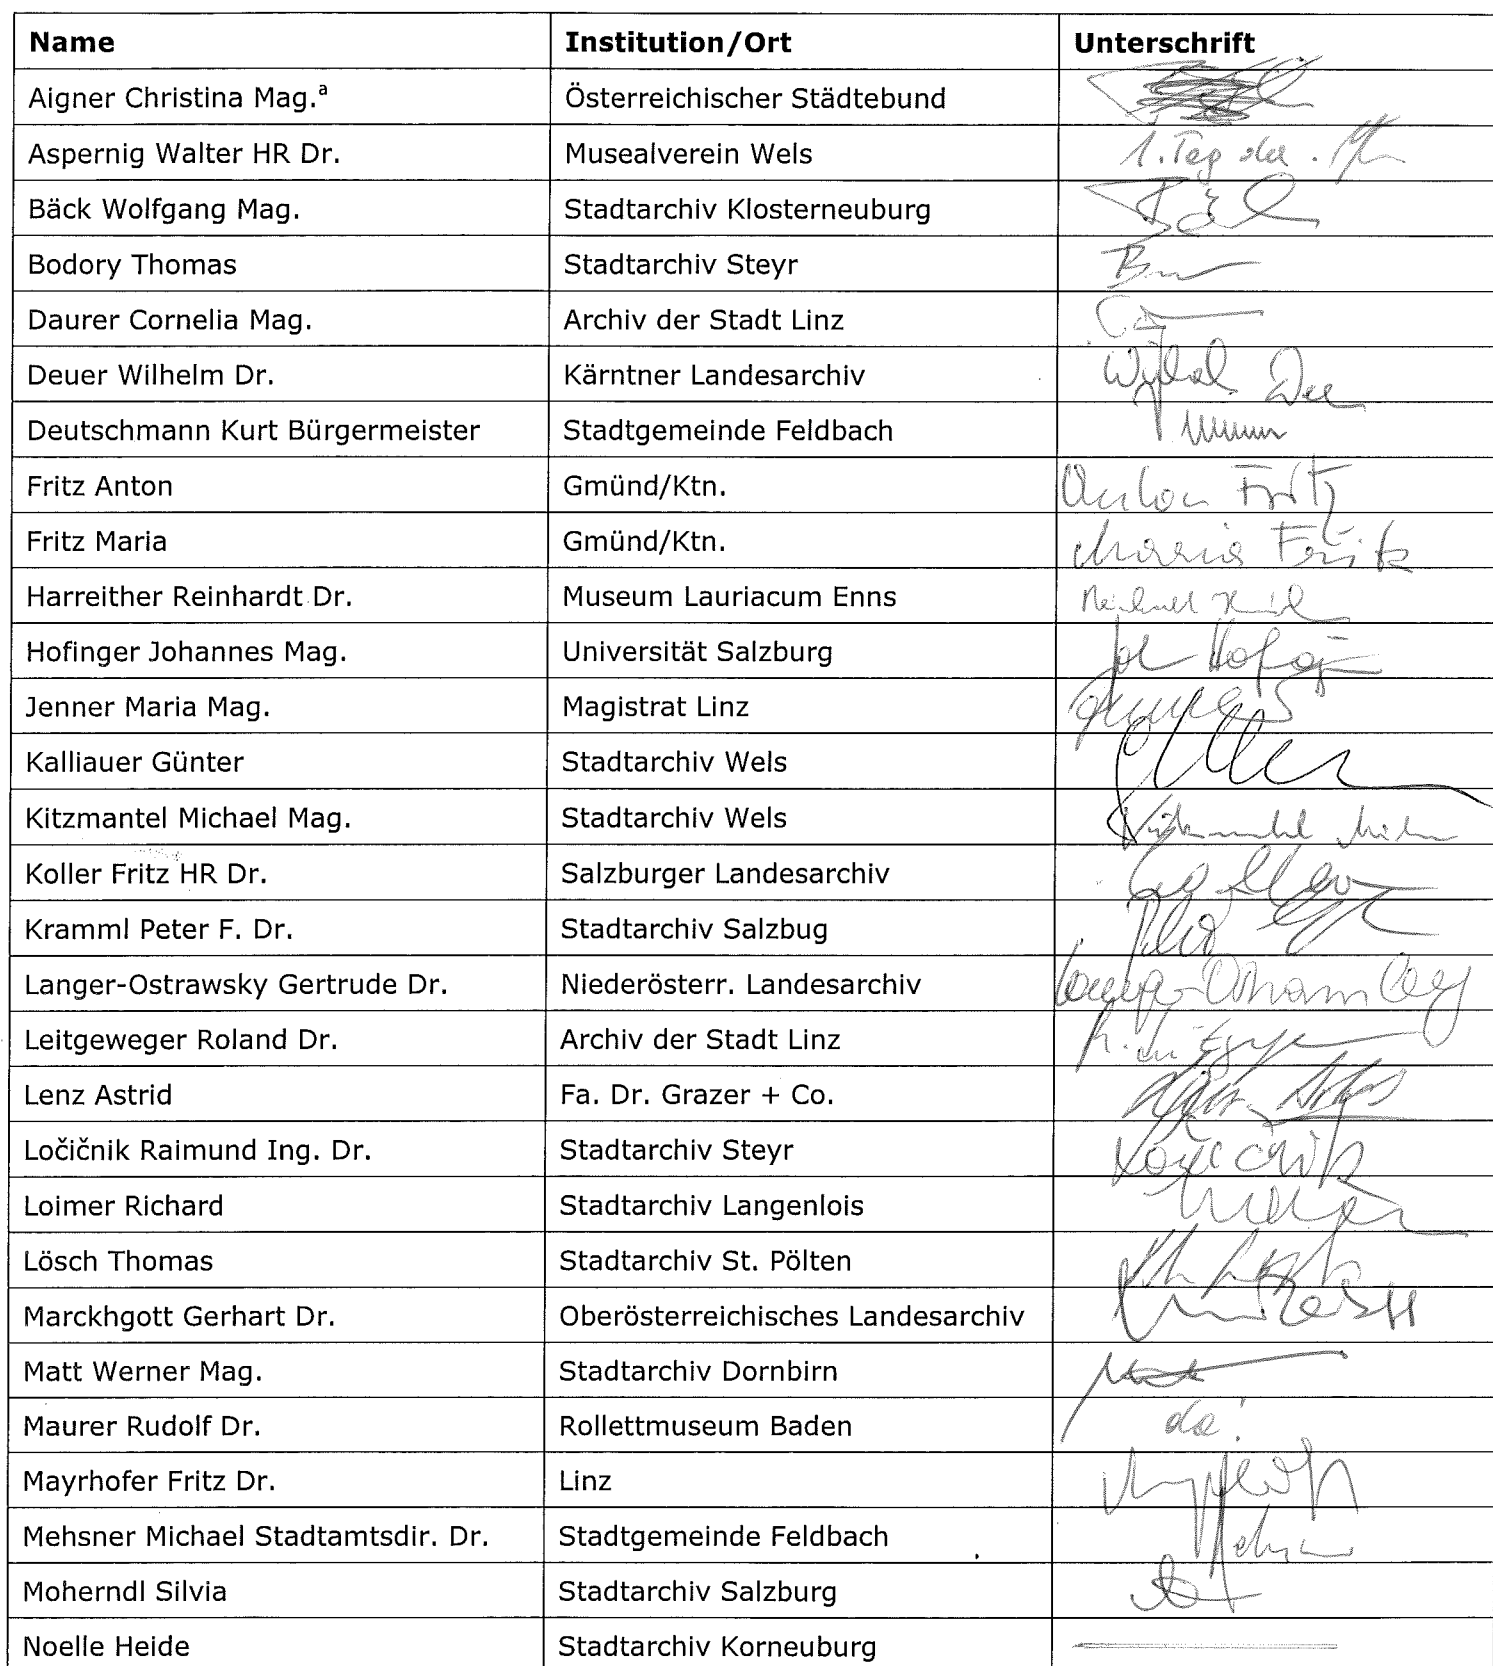 Name Institution/Ort Unterschrift
Aigner Christina Mag.ª Österreichischer Städtebund
Aspernig Walter HR Dr. Musealverein Wels 1. Tag da.
Bäck Wolfgang Mag. Stadtarchiv Klosterneuburg Bäck
Bodory Thomas Stadtarchiv Steyr
Daurer Cornelia Mag. Archiv der Stadt Linz
Deuer Wilhelm Dr. Kärntner Landesarchiv
Deutschmann Kurt Bürgermeister Stadtgemeinde Feldbach
Fritz Anton Gmünd/Ktn. Anton Fritz
Fritz Maria Gmünd/Ktn. Maria Fritz
Harreither Reinhardt Dr. Museum Lauriacum Enns
Hofinger Johannes Mag. Universität Salzburg
Jenner Maria Mag. Magistrat Linz
Kalliauer Günter Stadtarchiv Wels
Kitzmantel Michael Mag. Stadtarchiv Wels
Koller Fritz HR Dr. Salzburger Landesarchiv
Kramml Peter F. Dr. Stadtarchiv Salzbug
Langer-Ostrawsky Gertrude Dr. Niederösterr. Landesarchiv
Leitgeweger Roland Dr. Archiv der Stadt Linz
Lenz Astrid Fa. Dr. Grazer + Co.
Ločičnik Raimund Ing. Dr. Stadtarchiv Steyr
Loimer Richard Stadtarchiv Langenlois
Lösch Thomas Stadtarchiv St. Pölten
Marckhgott Gerhart Dr. Oberösterreichisches Landesarchiv
Matt Werner Mag. Stadtarchiv Dornbirn Matt
Maurer Rudolf Dr. Rollettmuseum Baden da!
Mayrhofer Fritz Dr. Linz
Mehsner Michael Stadtamtsdir. Dr. Stadtgemeinde Feldbach
Moherndl Silvia Stadtarchiv Salzburg
Noelle Heide Stadtarchiv Korneuburg